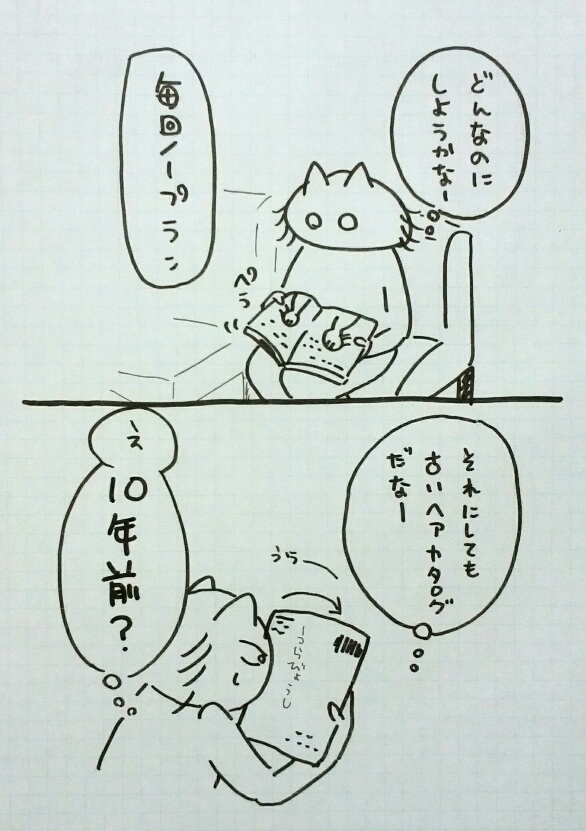 どんなのに
しようかなー
毎回ノープラン
ペら
それにしても
古いヘアカタログ
だなー
うら
うらびょうし
え
10年前?